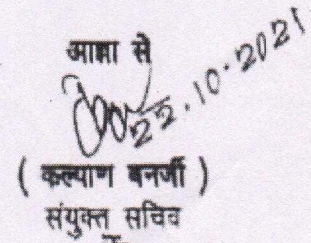 आज्ञा से
22.10.2021
( कल्याण बनर्जी )
संयुक्त सचिव